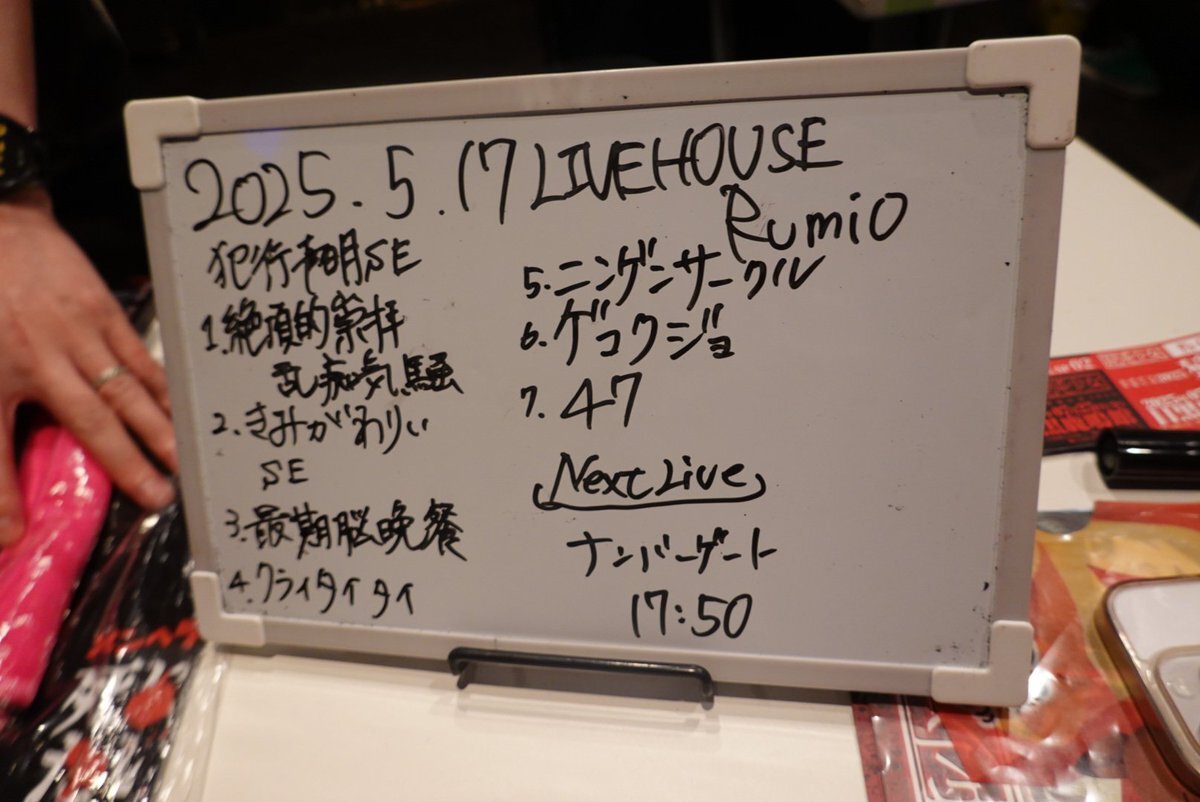 2025.5.17 LIVEHOUSE
RumiO
犯行声明SE
1.絶頂的崇拝
乱痴気騒
2.きみがわりぃ
SE
3.最期脳晩餐
4.クライタイタイ
5.ニンゲンサークル
6.ゲコクジョ
7.47
Next Live
ナンバーゲート
17:50